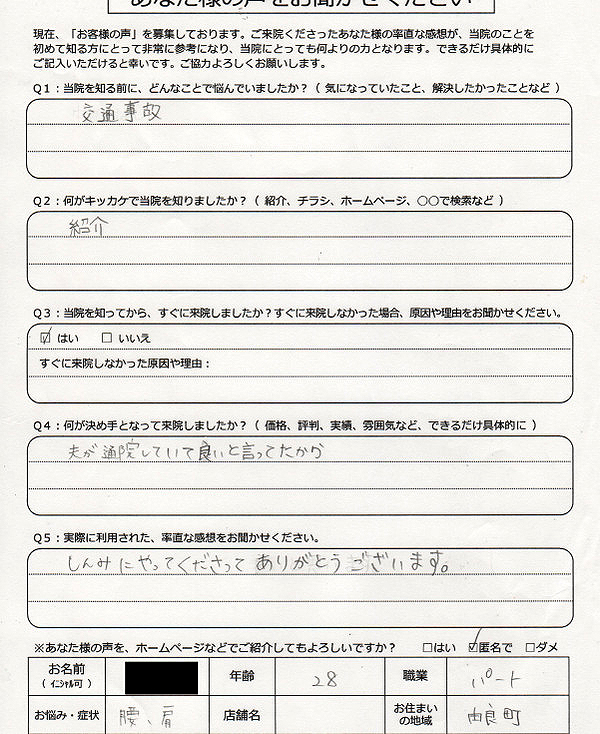 あなた様の声をお聞かせください
現在、「お客様の声」を募集しております。ご来院くださったあなた様の率直な感想が、当院のことを
初めて知る方にとって非常に参考になり、当院にとっても何よりの力となります。できるだけ具体的に
ご記入いただけると幸いです。ご協力よろしくお願いします。
Q1：当院を知る前に、どんなことで悩んでいましたか？（ 気になっていたこと、解決したかったことなど ）
交通事故
Q2：何がキッカケで当院を知りましたか？（ 紹介、チラシ、ホームページ、〇〇で検索など ）
紹介
Q3：当院を知ってから、すぐに来院しましたか？すぐに来院しなかった場合、原因や理由をお聞かせください。
☑ はい □ いいえ
すぐに来院しなかった原因や理由：
Q4：何が決め手となって来院しましたか？（ 価格、評判、実績、雰囲気など、できるだけ具体的に ）
夫が通院していて良いと言ってたから
Q5：実際に利用された、率直な感想をお聞かせください。
しんみにやってくださって ありがとうございます。
※あなた様の声を、ホームページなどでご紹介してもよろしいですか？ □はい ☑匿名で □ダメ
お名前 年齢 28 職業 パート
（ｲﾆｼｬﾙ可）
お悩み・症状 腰、肩 店舗名 お住まい 由良町
の地域